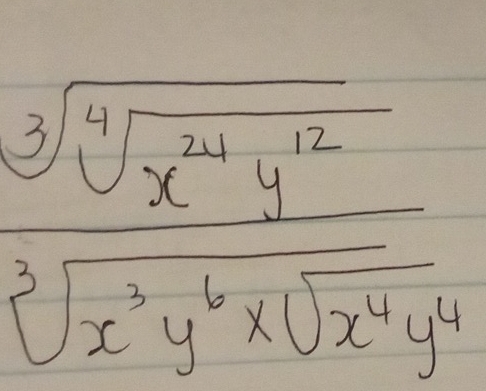 ∛(∜(x²⁴ y¹²))
∛(x³ y⁶ × √(x⁴ y⁴))